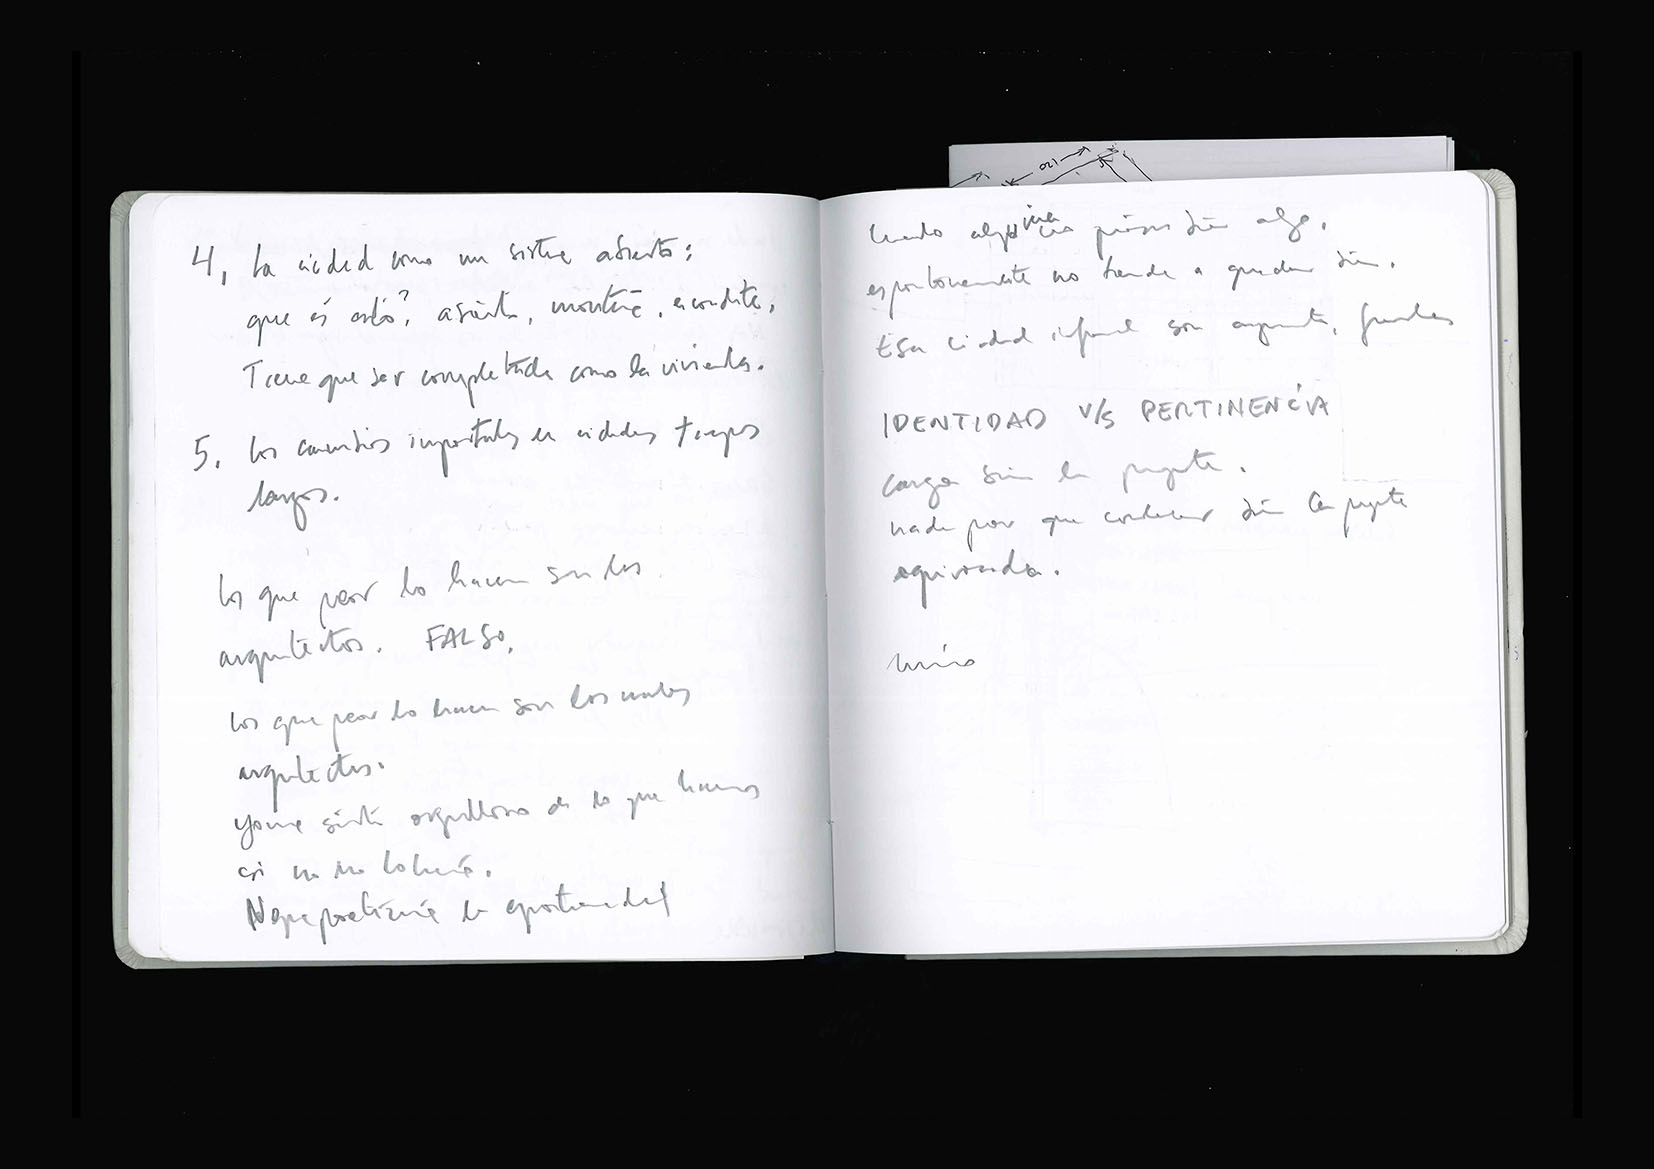 120
4. La ciudad como un sistema abierto:
que es esto? asiento, montaña, escondite.
Tiene que ser completada como la vivienda.
5. Los cambios importantes en ciudades tiempos
largos.
Los que peor lo hacen son los
arquitectos. FALSO.
Los que peor lo hacen son los malos
arquitectos.
Yo me siento orgulloso de lo que hacemos
si no no lo haría.
la oportunidad
Cuando algo bien algo.
espontaneamente no tiende a quedar bien.
Esa ciudad informal son
IDENTIDAD V/S PERTINENCIA
carga bien la pregunta.
nada peor que contestar bien la pregunta
equivocada.